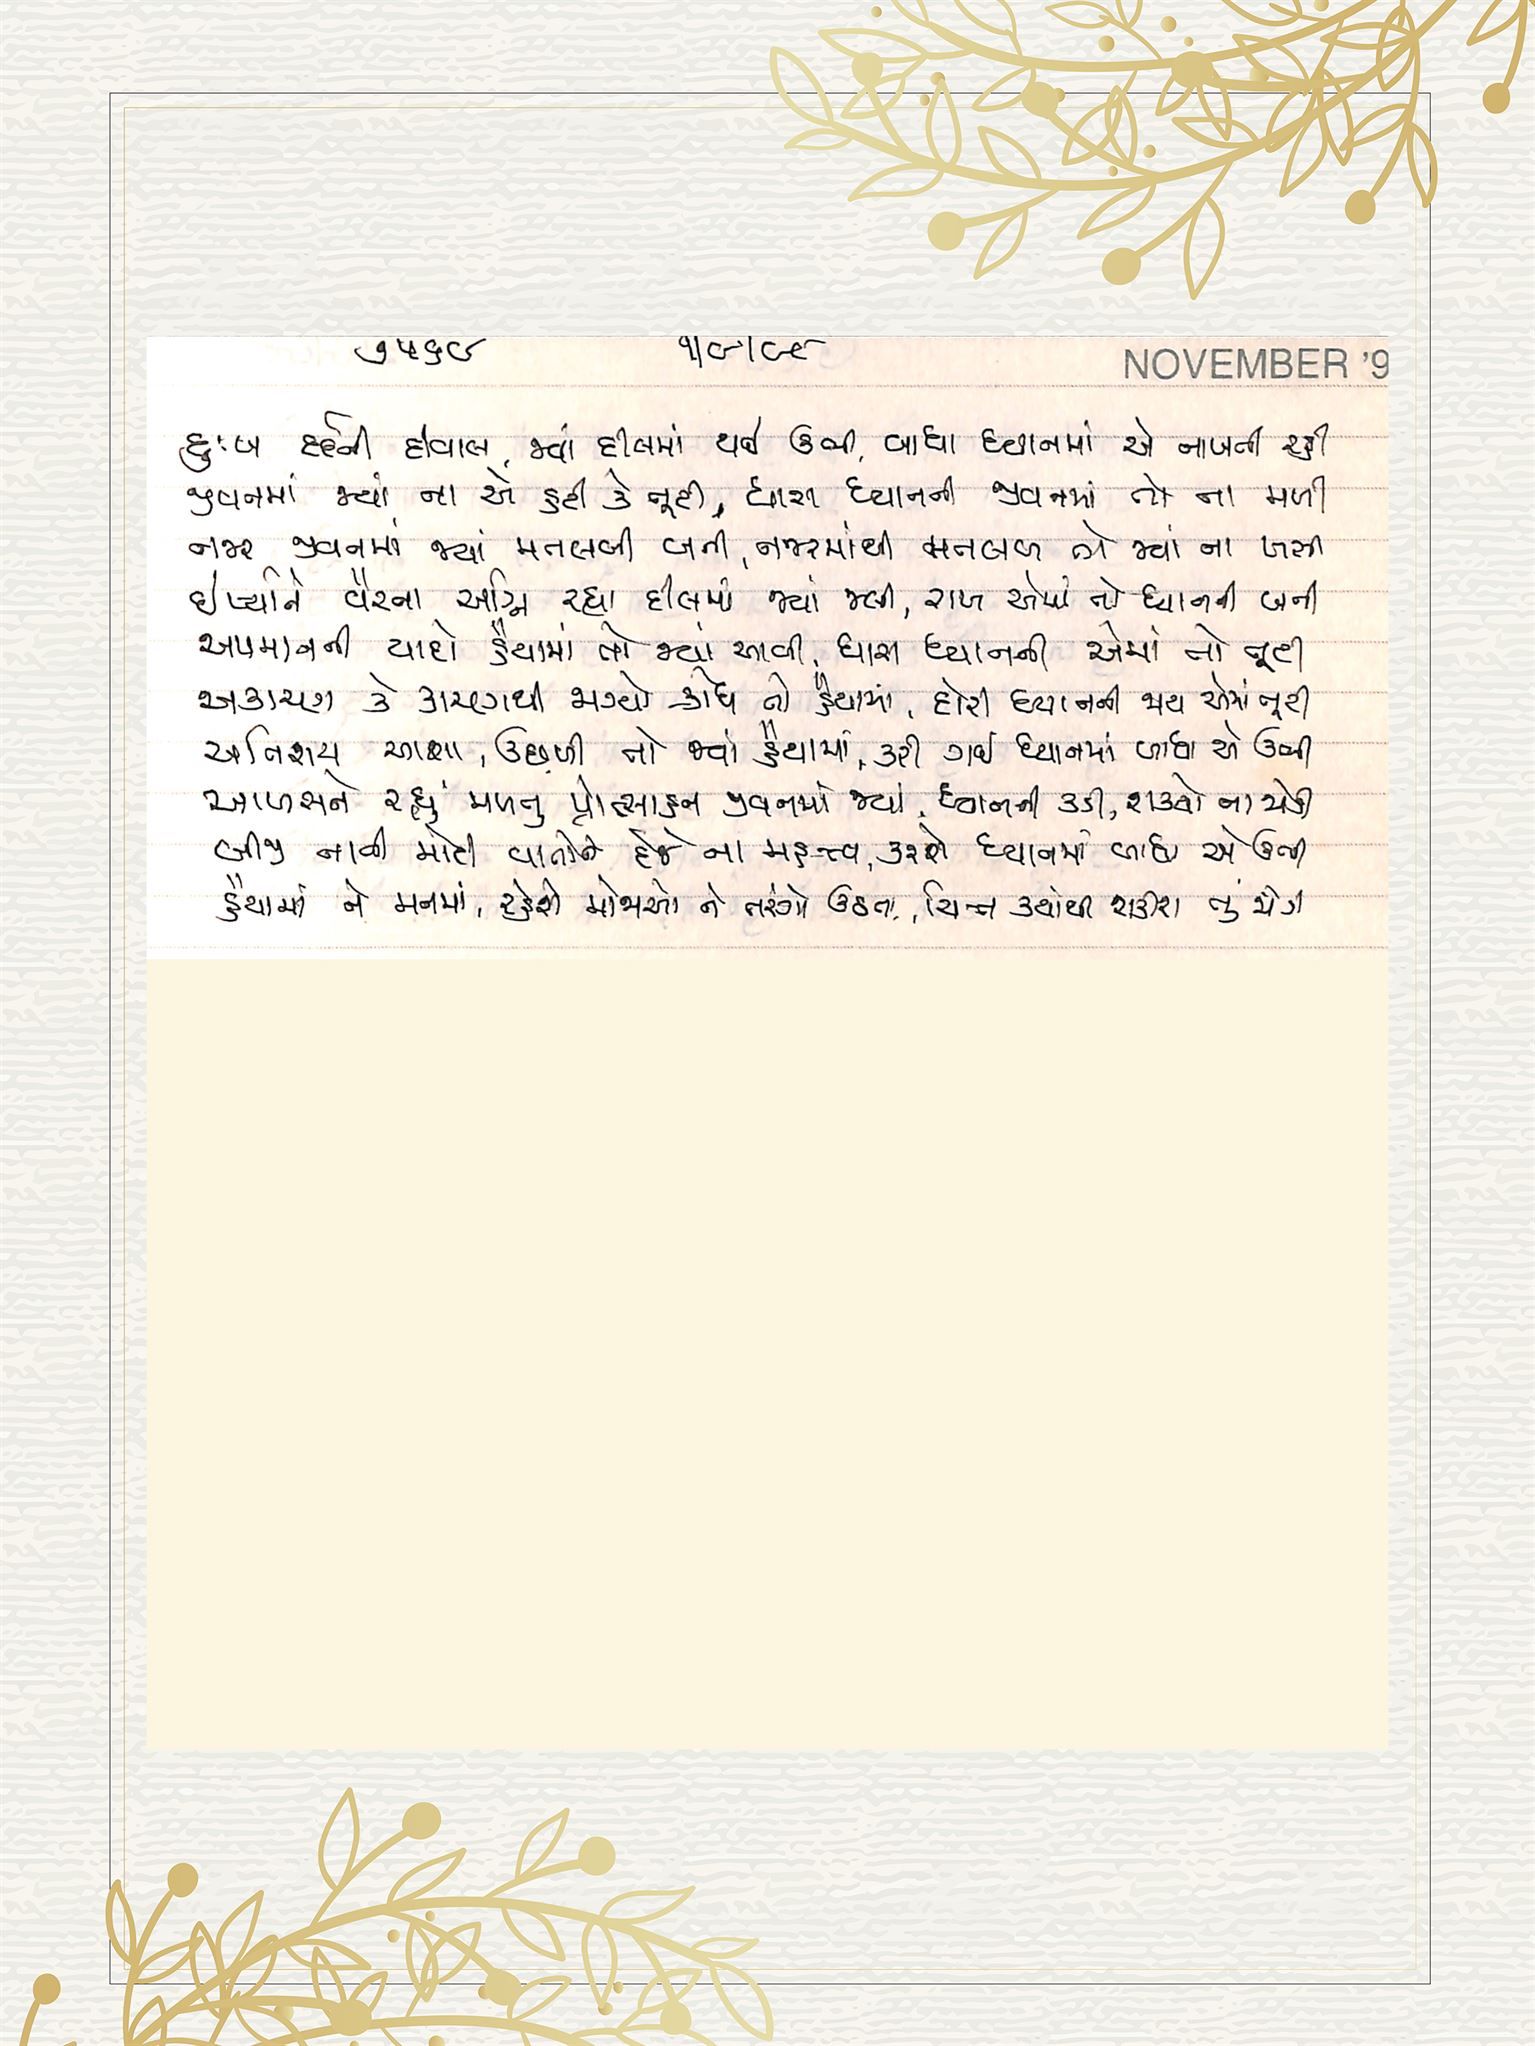 ૭૫૬૯ ૧/૯/૯૮ NOVEMBER '9
દુઃખ દર્દની દીવાલ, જ્યાં દીલમાં થઈ ઊભી, બાધા ધ્યાનમાં એ નાખતી રહી
જીવનમાં જ્યાં ના એ હટી કે તૂટી, ધારા ધ્યાનની જીવનમાં તો ના મળી
નજર જીવનમાં જ્યાં મતલબી બની, નજરમાંથી મતલબ તો જ્યાં ના ખસી
ઈર્ષ્યાને વૈરના અગ્નિ રહ્યા દીલમાં જ્યાં જલી, રાખ એમાં તો ધ્યાનની બની
અપમાનની યાદો હૈયામાં તો જ્યાં આવી, ધારા ધ્યાનની એમાં તો તૂટી
અકારણ કે કારણથી જાગ્યો ક્રોધ તો હૈયામાં, દોરી ધ્યાનની જાય એમાં તૂટી
અતિશય આશા, ઉછળી તો જ્યાં હૈયામાં, કરી ગઈ ધ્યાનમાં બાધા એ ઊભી
આળસને રહ્યું મળતુ પ્રોત્સાહન જીવનમાં જ્યાં, ધ્યાનની કડી, શકશો ના જોડી
બીજી નાની મોટી વાતોને દેજે ના મહત્ત્વ, કરશે ધ્યાનમાં બાધા એ ઊભી
હૈયામાં ને મનમાં, રહેશે મોજાઓ ને તરંગો ઉઠતા, ચિત્ત ક્યાંથી શકીશ તું જોડી